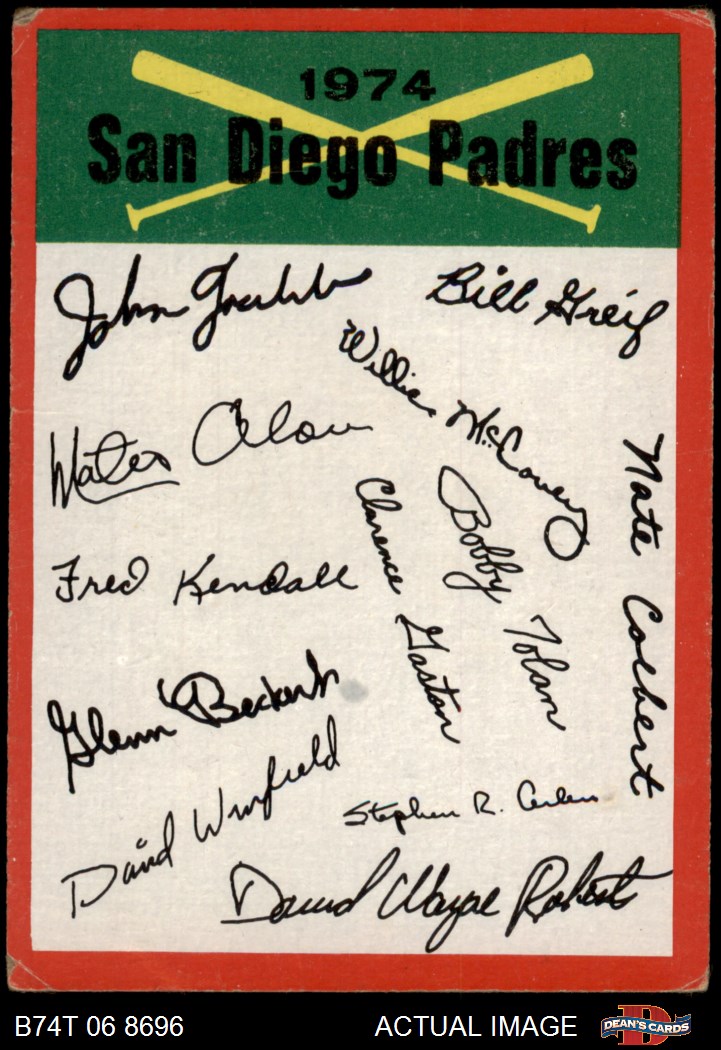 1974
San Diego Padres
John Grubb
Bill Greif
Willie McCovey
Mateo Alou
Nate Colbert
Clarence Gaston
Bobby Tolan
Fred Kendall
Glenn Beckert
David Winfield
Stephen R. Arlin
David Wayne Roberts
B74T 06 8696
ACTUAL IMAGE
D
DEAN'S CARDS